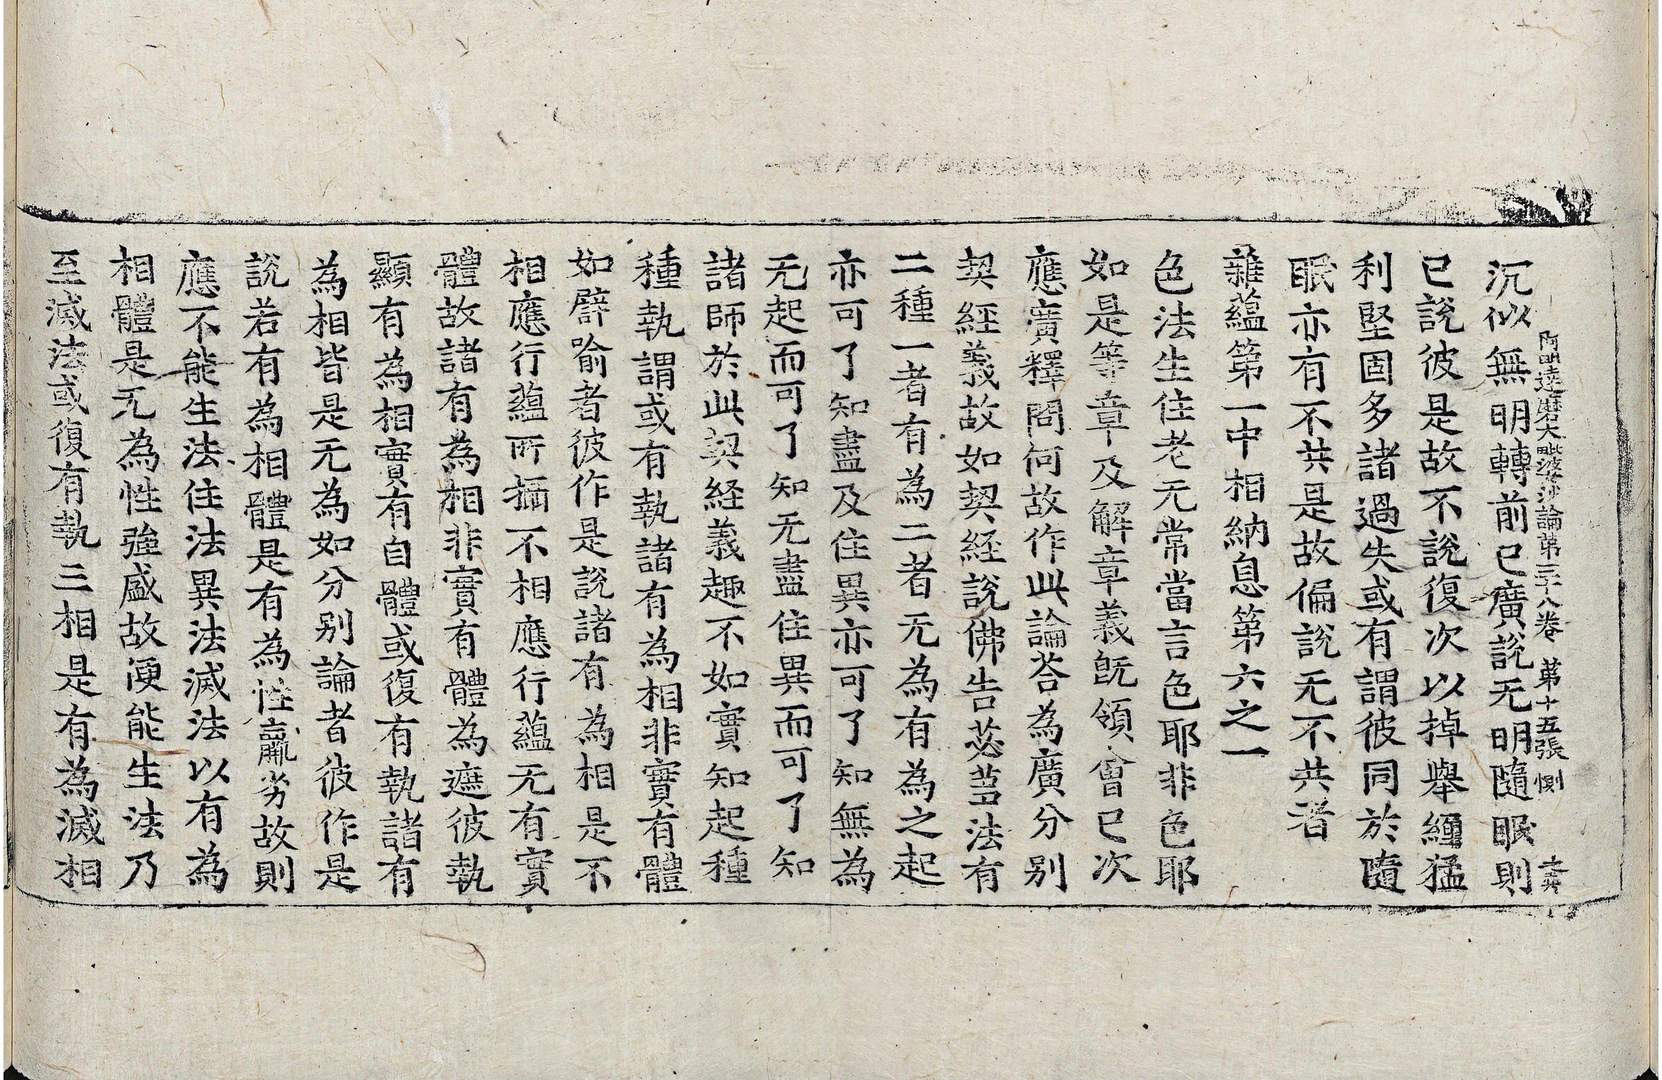 阿毗達磨大毗婆沙論第三十八卷 第十五張 惻
沉似無明轉前已廣說无明隨眠則
已說彼是故不說復次以掉舉纏猛
利堅固多諸過失或有謂彼同於隨
眠亦有不共是故偏說无不共者
雜蘊第一中相納息第六之一
色法生住老无常當言色耶非色耶
如是等章及解章義旣領會已次
應廣釋問何故作此論荅為廣分別
契經義故如契經說佛告苾芻法有
二種一者有為二者无為有為之起
亦可了知盡及住異亦可了知無為
无起而可了知无盡住異而可了知
諸師於此契経義趣不如實知起種
種執謂或有執諸有為相非實有體
如譬喻者彼作是說諸有為相是不
相應行蘊所攝不相應行蘊无有實
體故諸有為相非實有體為遮彼執
顯有為相實有自體或復有執諸有
為相皆是无為如分別論者彼作是
說若有為相體是有為性羸劣故則
應不能生法住法異法滅法以有為
相體是无為性強盛故便能生法乃
至滅法或復有執三相是有為滅相